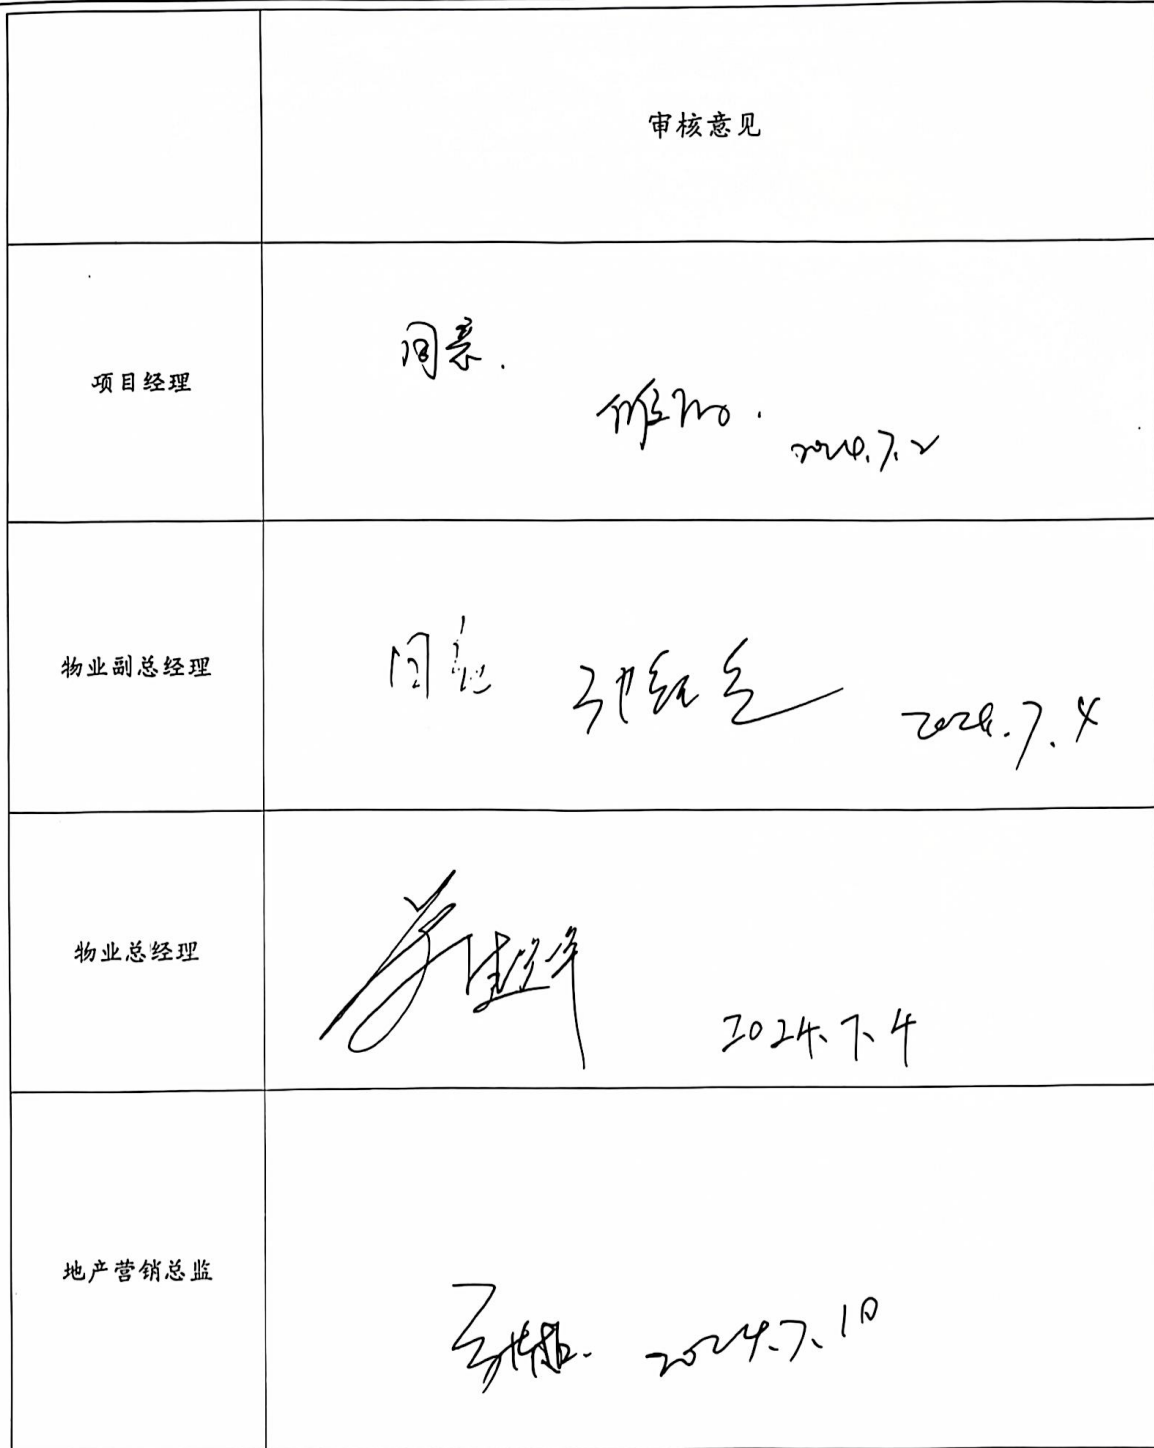 审核意见
项目经理
同意.
2024.7.2
物业副总经理
同意
2024.7.4
物业总经理
2024.7.4
地产营销总监
2024.7.10